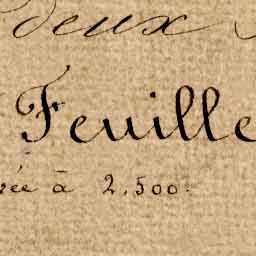 deux
Feuille
ée à 2,500.